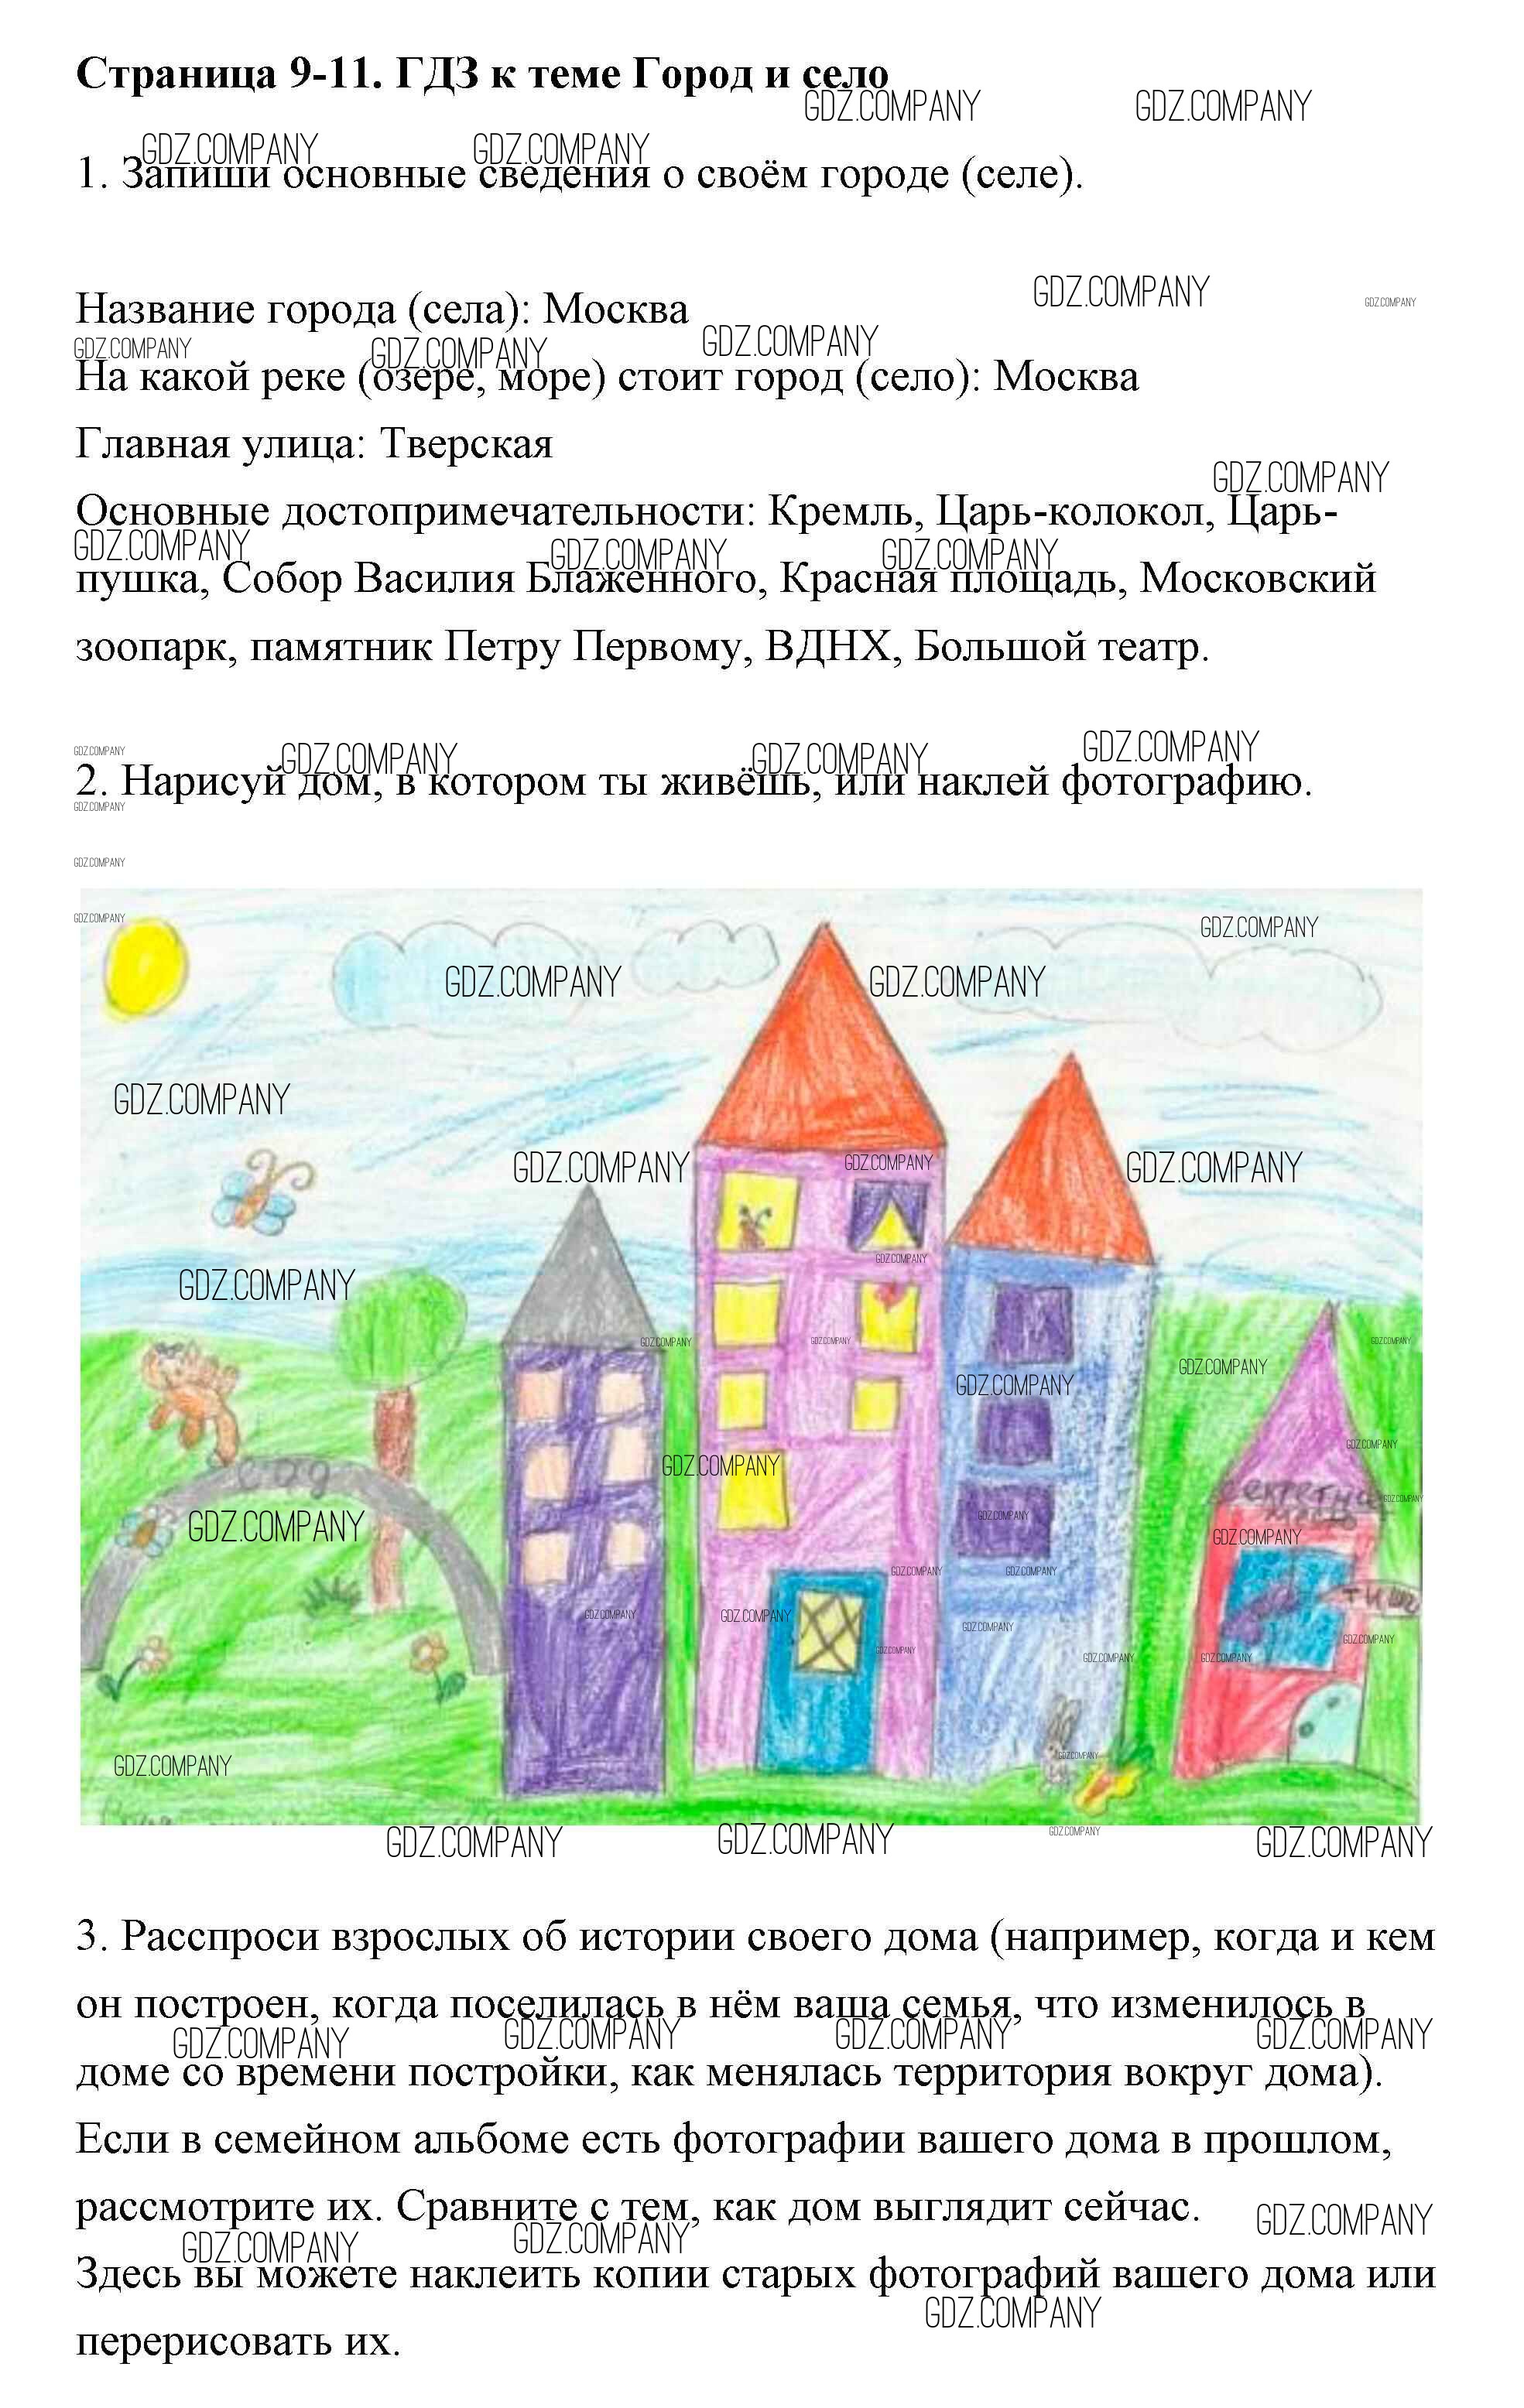 Страница 9-11. ГДЗ к теме Город и село
GDZ.COMPANY
1. Запиши основные сведения о своём городе (селе).
Название города (села): Москва
На какой реке (озере, море) стоит город (село): Москва
Главная улица: Тверская
Основные достопримечательности: Кремль, Царь-колокол, Царь-
пушка, Собор Василия Блаженного, Красная площадь, Московский
зоопарк, памятник Петру Первому, ВДНХ, Большой театр.
2. Нарисуй дом, в котором ты живёшь, или наклей фотографию.
3. Расспроси взрослых об истории своего дома (например, когда и кем
он построен, когда поселилась в нём ваша семья, что изменилось в
доме со времени постройки, как менялась территория вокруг дома).
Если в семейном альбоме есть фотографии вашего дома в прошлом,
рассмотрите их. Сравните с тем, как дом выглядит сейчас.
Здесь вы можете наклеить копии старых фотографий вашего дома или
перерисовать их.